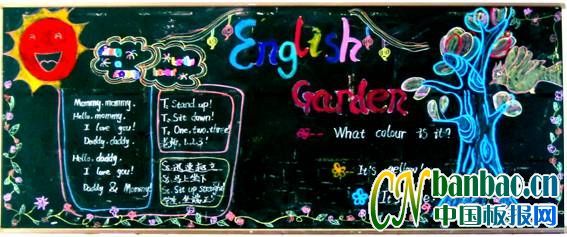 English
Garden
Mommy. mommy.
Hello. mommy.
I love you!
Daddy. daddy.
Hello. daddy.
I love you!
Daddy & Mommy
T, Stand up!
T, Sit down!
T, One, two, three!
1, 2, 3!
S: 迅速起立
S: 马上坐下
S: Sit up straight
What colour is it?
It's yellow!
It
CNbanbao.cn
中国板报网